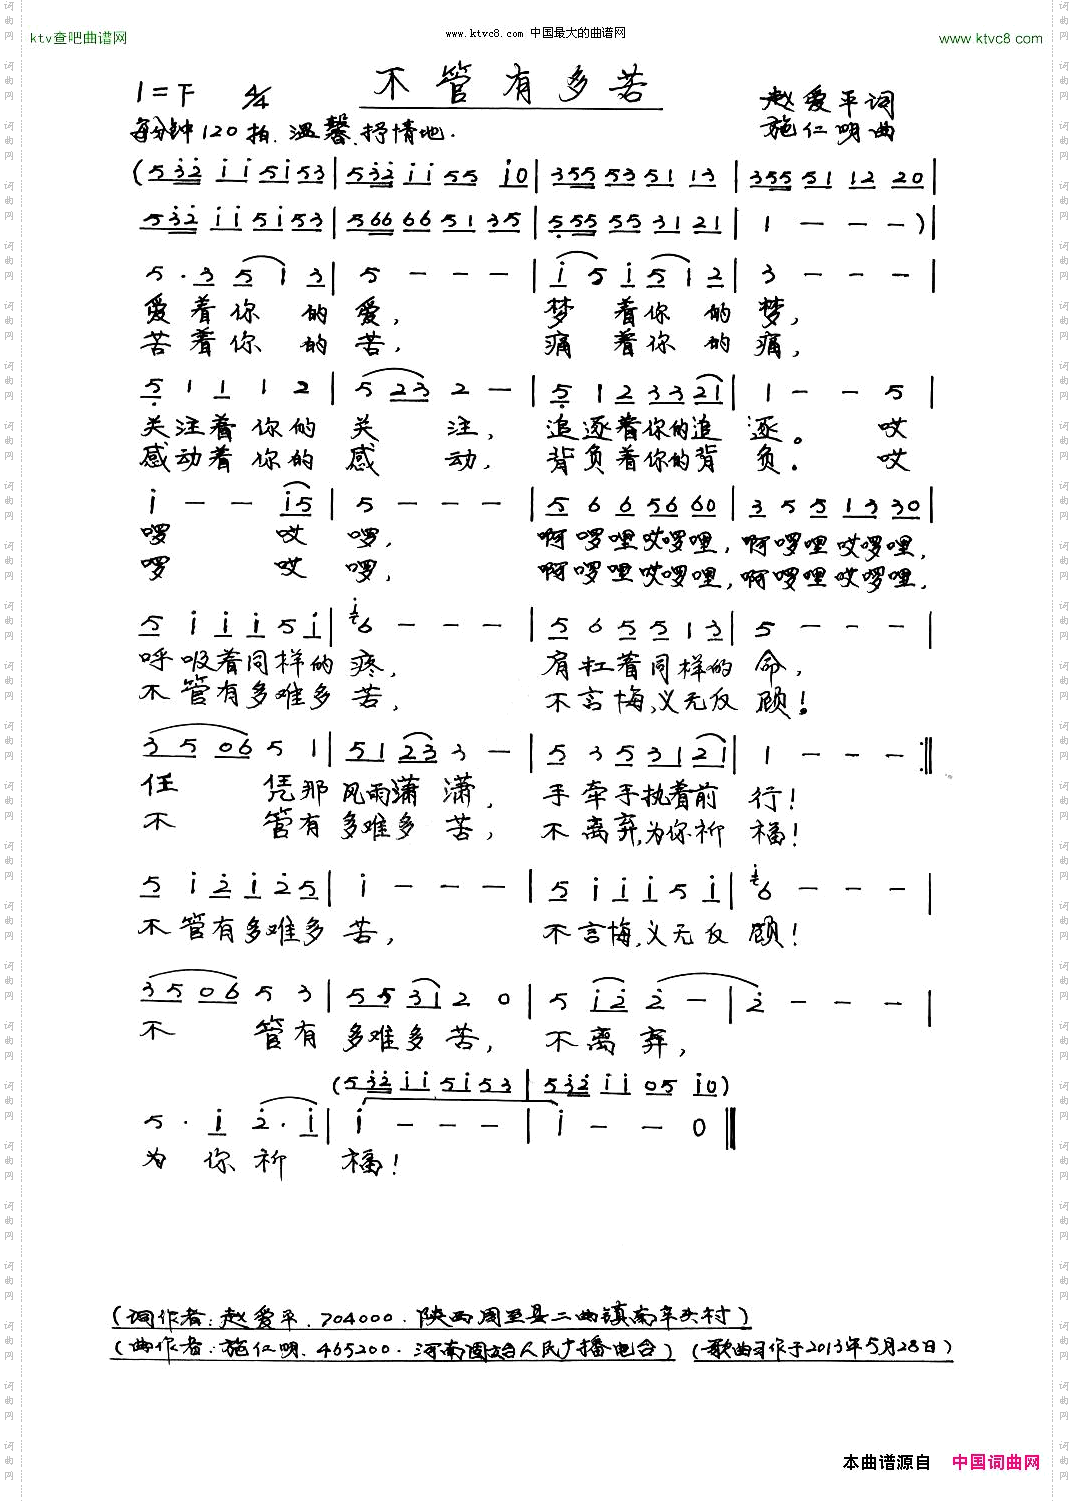 www.ktvc8.com 中国最大的曲谱网
ktv查吧曲谱网
www.ktvc8.com
不管有多苦
1=F 4/4
赵爱平词
每分钟120拍.温馨.抒情地.
施仁明曲
(532 11 5153|532 11 55 10|355 53 51 13|355 51 12 20|
532 11 51 53|566 66 51 35|555 55 31 21|1 - - - )|
5 · 3 5 1 3|5 - - -|1 5 1 5 1 2|3 - - -|
爱着你的爱, 梦着你的梦,
苦着你的苦, 痛着你的痛,
5 1 1 1 2|5 23 2 -|5 1 2 33 21|1 - - 5|
关注着你的关注, 追逐着你的追逐。哎
感动着你的感动, 背负着你的背负。哎
1 - - 15|5 - - -|5 6 6 56 60|3 5 5 13 30|
啰哎啰, 啊啰哩哎啰哩,啊啰哩哎啰哩,
啰哎啰, 啊啰哩哎啰哩,啊啰哩哎啰哩,
5 1 1 1 5 1|1 6 - - -|5 6 5 5 1 3|5 - - -|
呼吸着同样的疼, 肩扛着同样的命,
不管有多难多苦, 不言悔,义无反顾!
35 06 5 1|51 23 3 -|5 3 5 31 21|1 - - - :‖
任凭那风雨潇潇, 手牵手执着前行!
不管有多难多苦, 不离弃,为你祈福!
5 1 2 1 2 5|1 - - -|5 1 1 1 5 1|1 6 - - -|
不管有多难多苦, 不言悔,义无反顾!
35 06 5 3|55 31 2 0|5 12 2 -|2 - - -|
不管有多难多苦, 不离弃,
(532 11 51 53|532 11 05 10)
5 · 1 2 · 1|1 - - -|1 - - 0‖
为你祈福!
(词作者:赵爱平.704000.陕西周至县二曲镇南辛头村)
(曲作者:施仁明.465200.河南固始人民广播电台) (歌曲习作于2013年5月28日)
本曲谱源自 中国词曲网